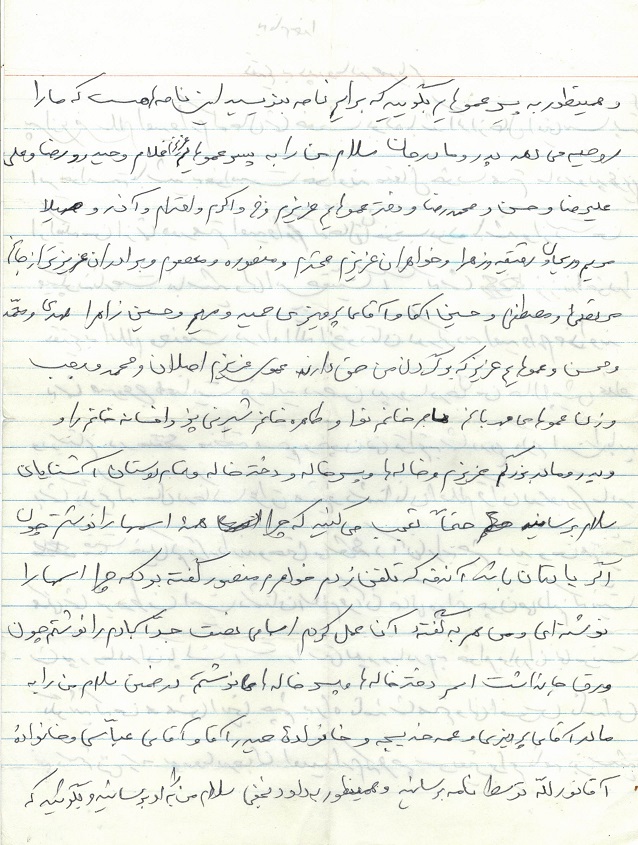 و همینطور به پسر عموهایم بگویید که برایم نامه بنویسید این نامه است که ما را
روحیه می دهد پدر و مادر جان سلام من را به پسر عموهایم غلام و حیدر و رضا و علی
علیرضا و حسن و محمدرضا و دختر عموهای عزیزم فرخ و اکرم و اقدام و آذر و سهیلا
مریم و رفیقه و زهرا و خواهران عزیزم محترم و منصوره و معصوم و برادران عزیزتر از جانم
مرتضی و مصطفی و حسین آقا و آقای پرویزی حمید و مریم و حسین زهرا مهدی و محمد
و محسن و عموهای عزیز که بر گردن من حق دارند عموی عزیزم اصلان و محمد و
و زن عموهای مهربانم خانم نوا و طاهره خانم شیرینی پز و افسانه خانم را و
و پدر و مادر بزرگم عزیزم و خاله ها و پسر خاله و دختر خاله و تمام دوستان آشنایان
سلام برسانید حتماً تعجب می کنید که چرا همۀ اسمها را نوشتم چون
اگر یادتان باشد آن دفعه که تلفن زدم خواهرم منصور گفته بود که چرا اسمها را
نوشته ای و من هم به گفتۀ آن عمل کردم اسامی نصف جد آبادم را نوشتم چون
ورق جا نداشت اسم دختر خاله ها و پسر خاله ها ننوشتم در ضمن سلام من را به
مادر آقای پرویزی و عمه خدیجه و خانوادۀ حیدر آقا و آقای عباسی و خانوادۀ
آقا نورالله توسط نامه برسانید و همینطور به داود نجفی سلام من را به او برسانید و بگوئید که